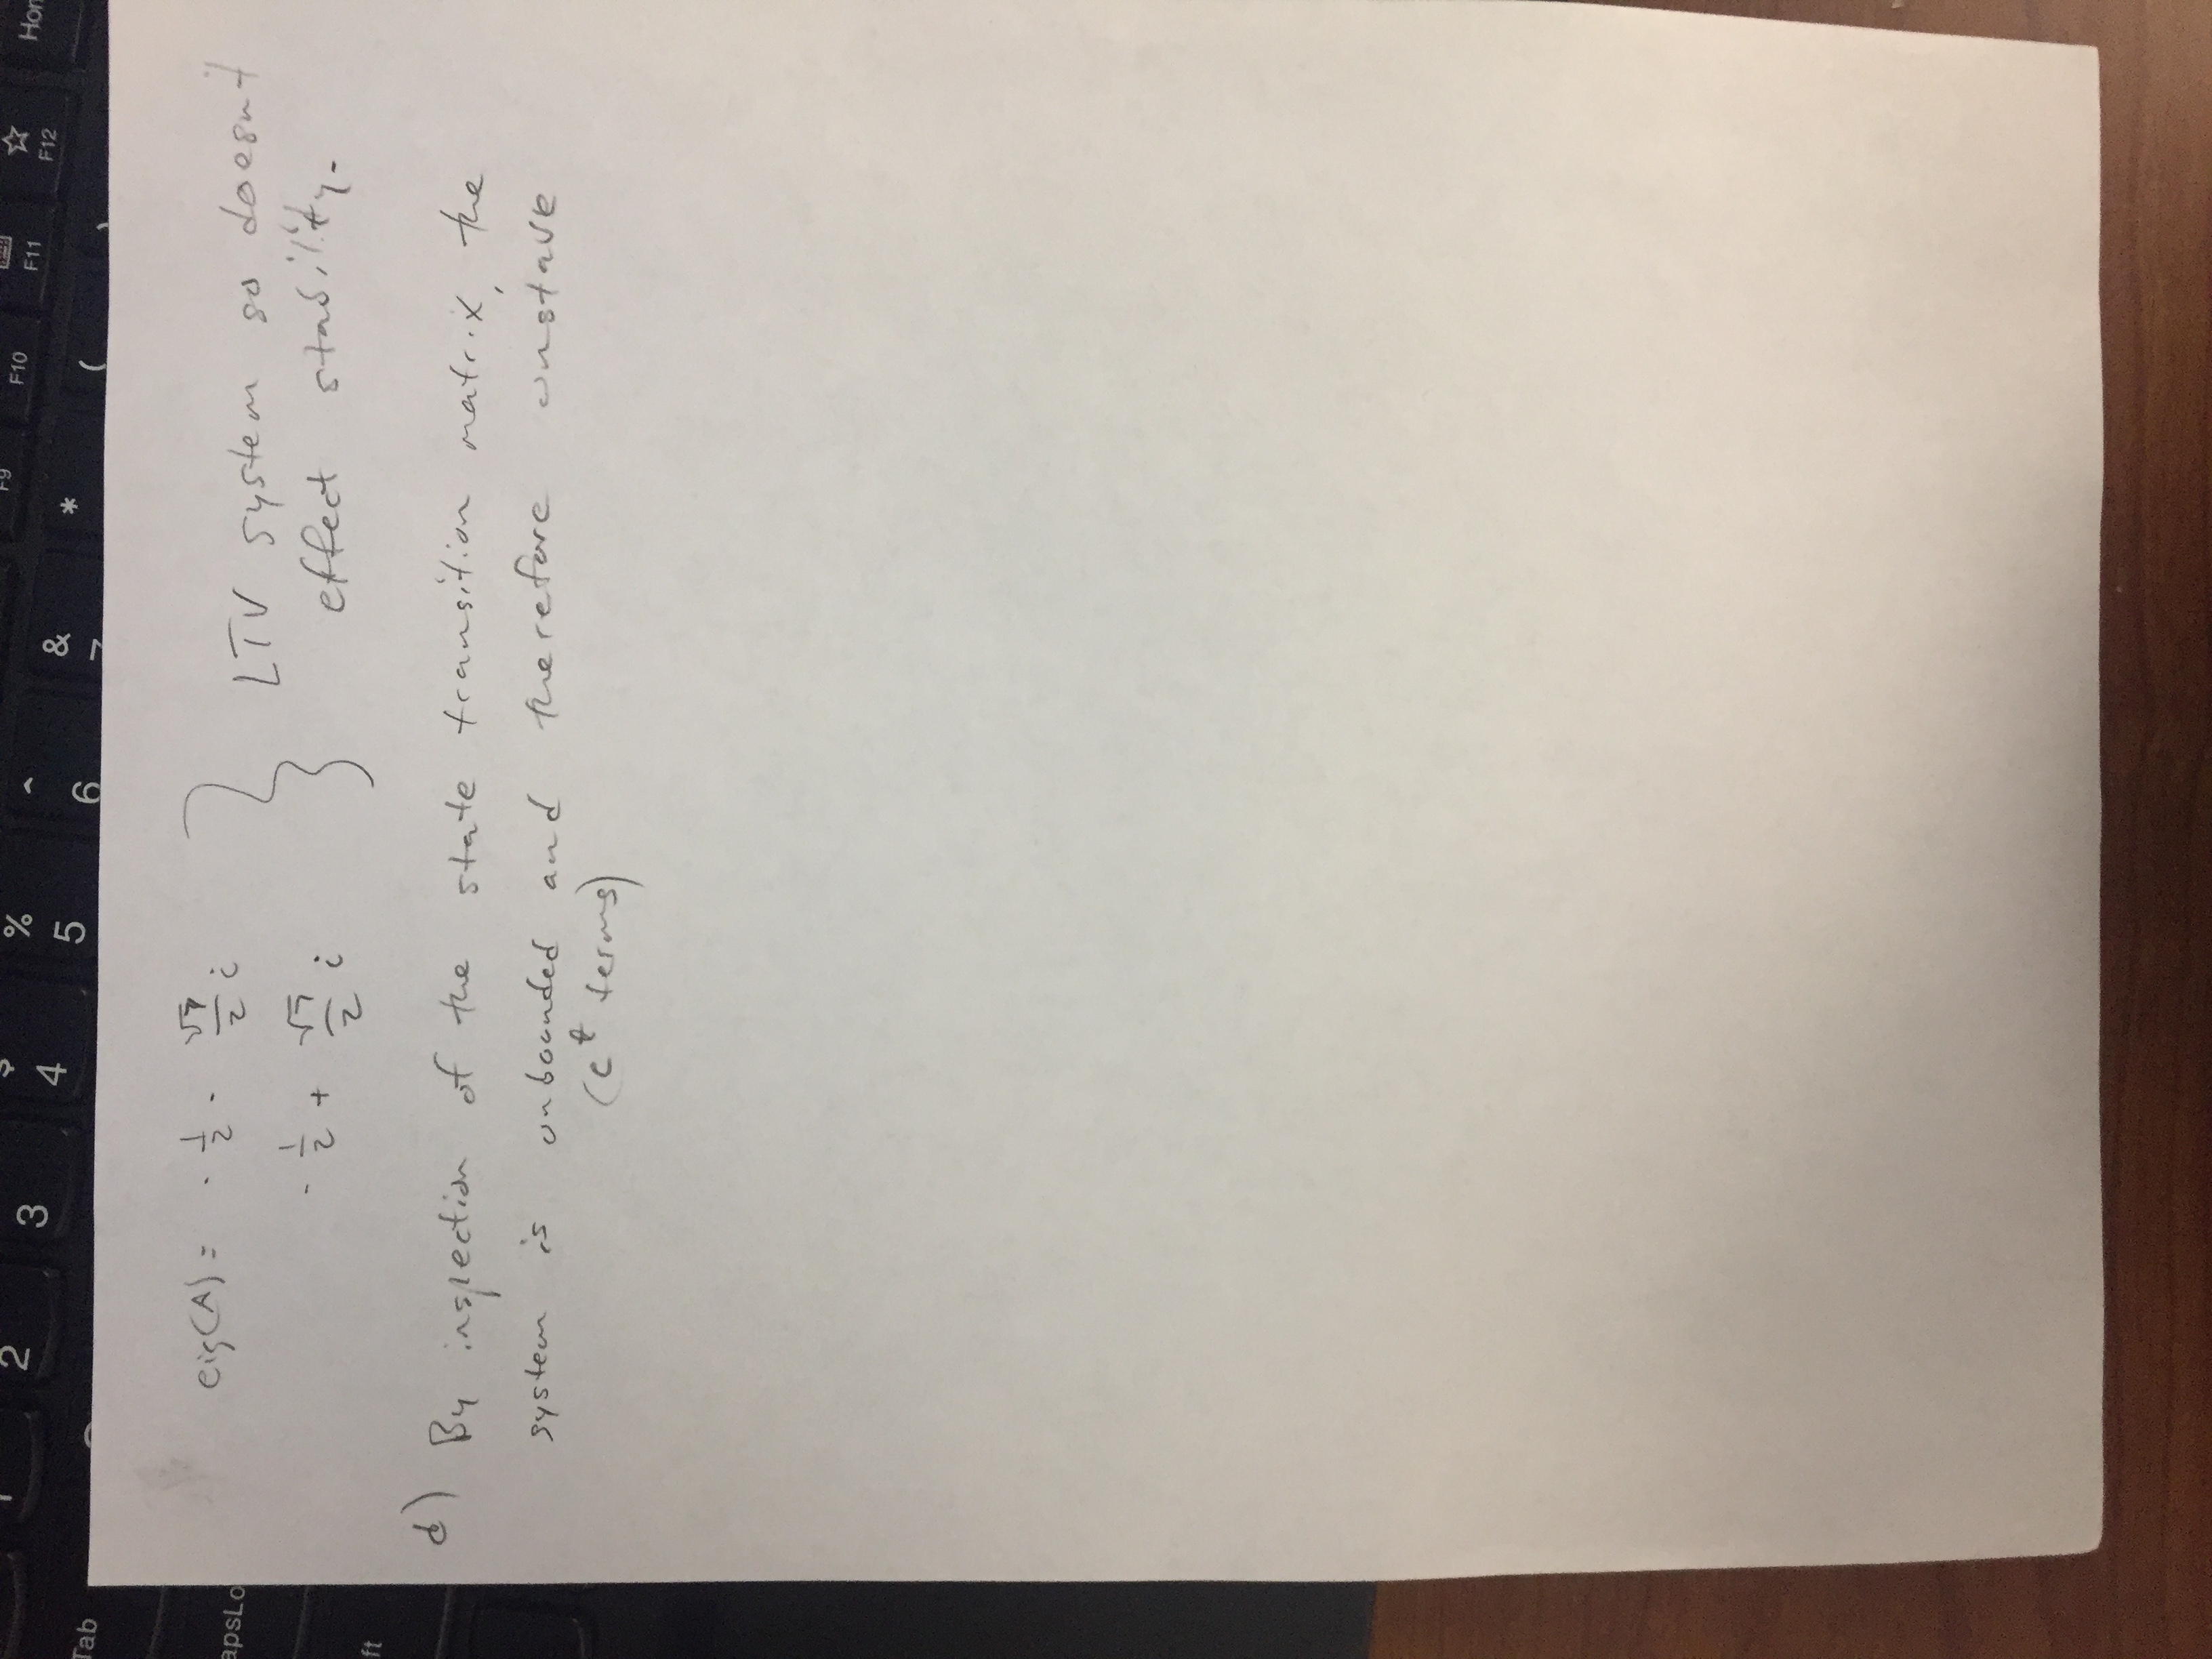 2 3 $ 4 % 5 ^ 6 & * ( ) F9 F10 F11 F12
Tab
eig(A) = - 1/2 - √7/2 i
- 1/2 + √7/2 i
LTV system so doesn't
effect stability.
d) By inspection of the state transition matrix, the
system is unbounded and therefore unstable
(e^t terms)